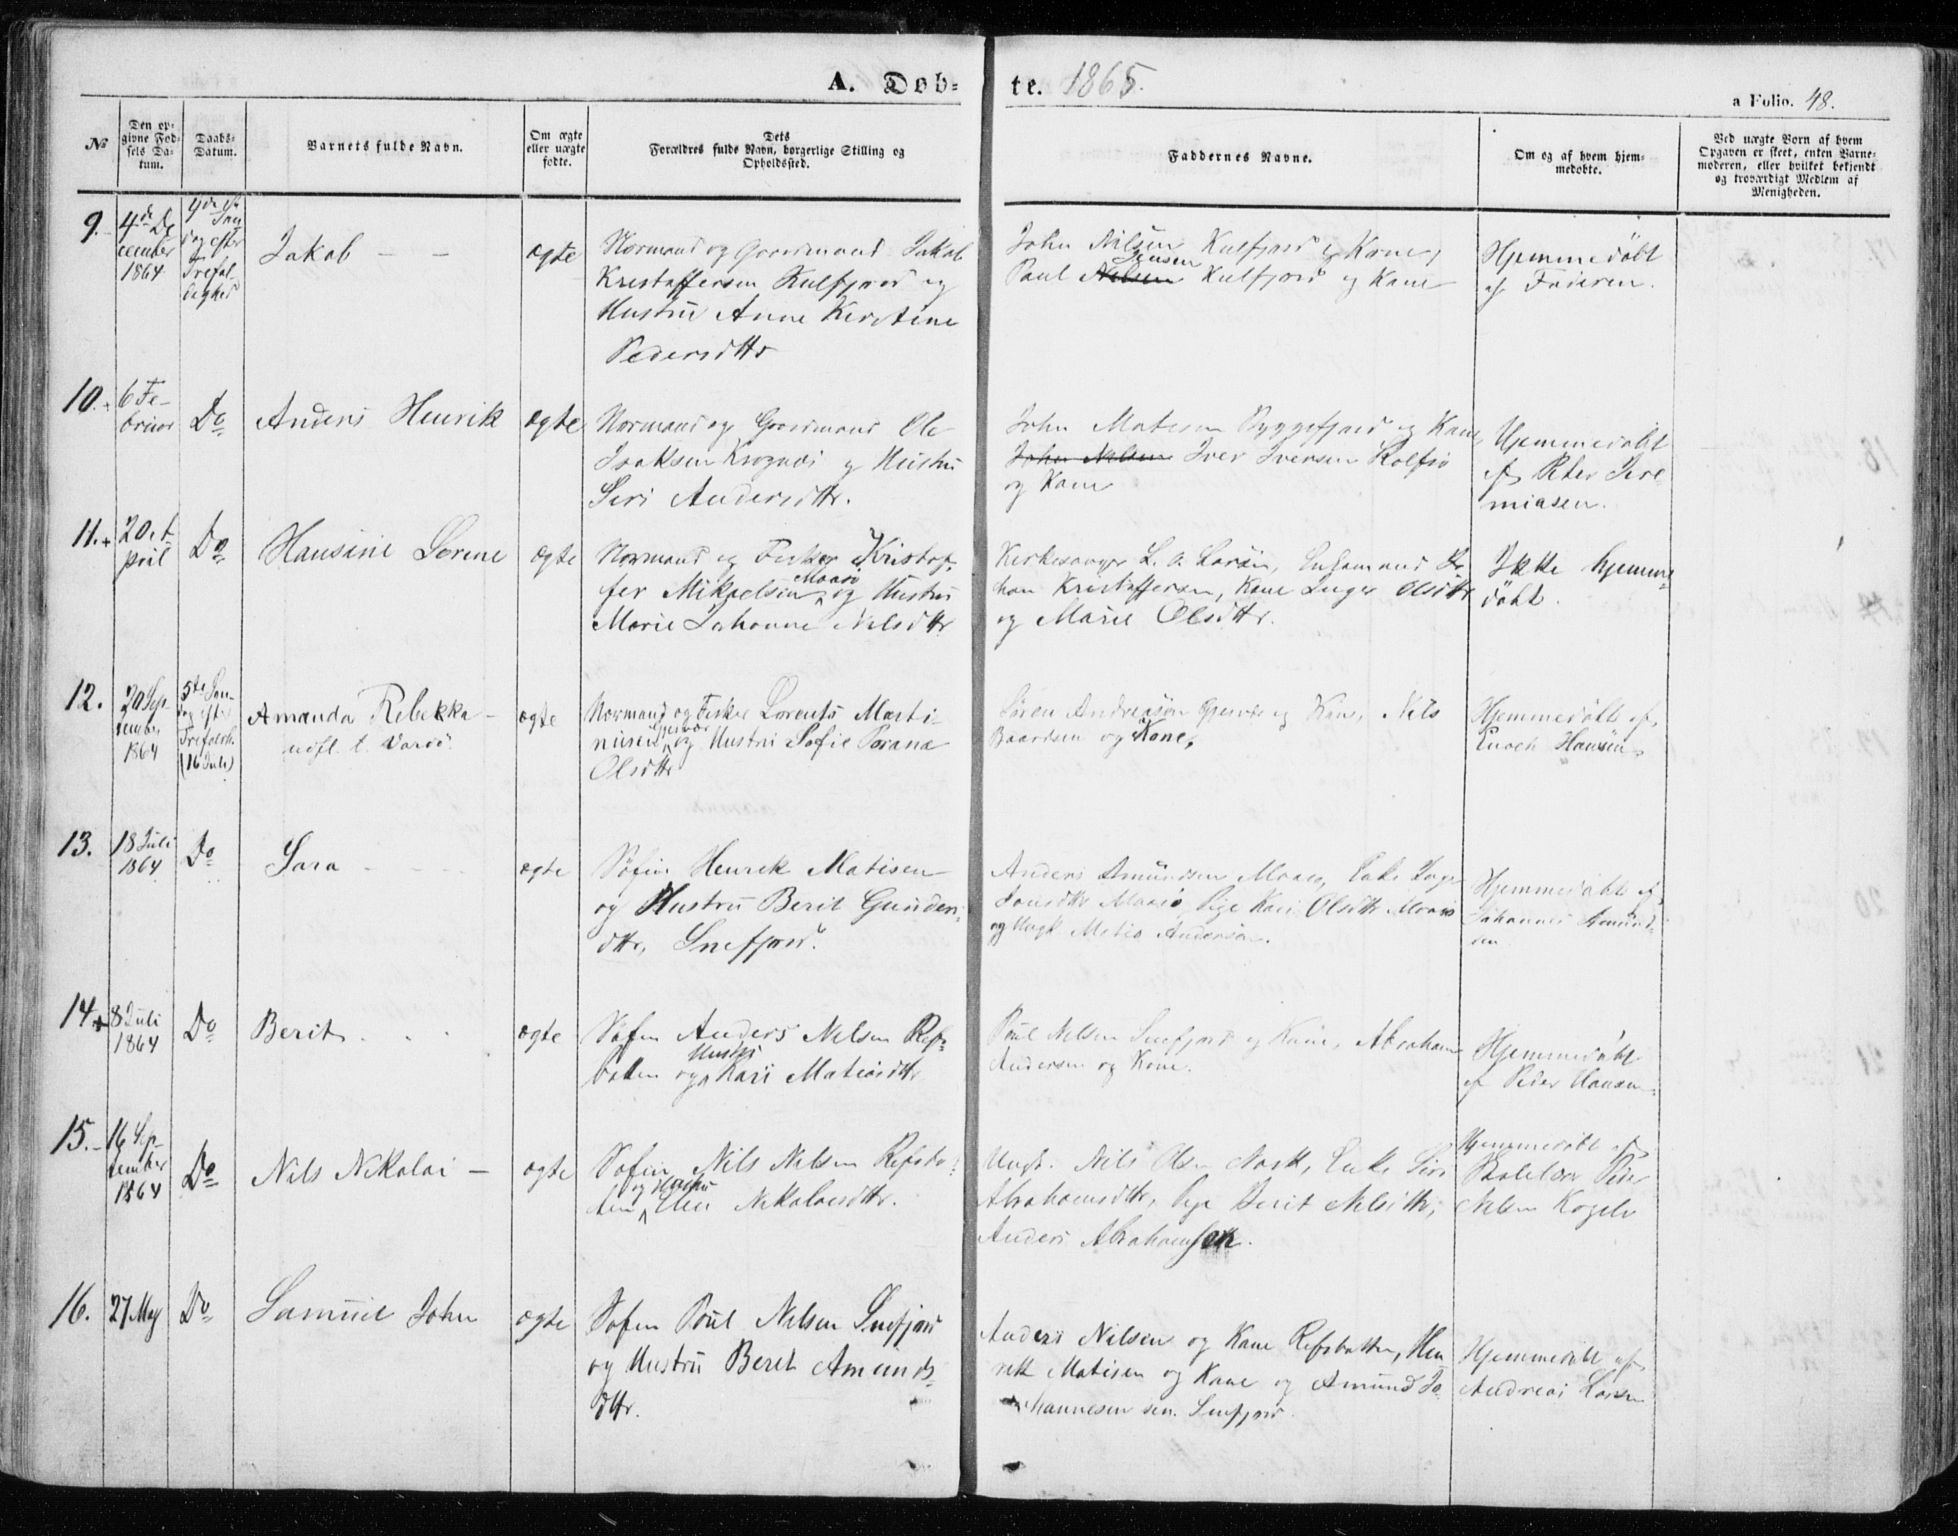 A. Døb-te. 1865.
a Folio. 48.
№
Den opgivne Fødsels Datum.
Daabs-Datum.
Barnets fulde Navn.
Om ægte eller uægte fødte.
Dets Forældres fulde Navn, borgerlige Stilling og Opholdssted.
Faddernes Navne.
Om og af hvem hjemmedøbte.
Ved uægte Børn af hvem Opgaven er skeet, enten Barnemoderen, eller hvilket bekjendt og troværdigt Medlem af Menigheden.
9.
4de De
cember
1864
4de
Søn
dag efter
Trefol
dighed
Jakob
ægte
Normand og Gaardmand Jakob
Kristoffersen Kulfjord og
Hustru Anne Kirstine
Pedersdttr
John Nilsen Kulfjord og Kone,
Jensen
Paul Nelsen Kulfjord og Kone
Hjemmedøbt
af Faderen.
10.
6 Fe-
bruar
Do
Anders Henrik
ægte
Normand og Gaardmand Ole
Isaksen Krognæs og Hustru
Siri Andersdttr.
John Matisen Ryggefjord og Kone
John Nelsen Iver Iversen Rolfsø
og Kone
Hjemmedøbt
af Peter Jere
miasen.
11.+
20. A
pril
Do
Hansine Lorene
ægte
Normand og Fisker Kristof
fer Mikkelsen Maasø og Hustru
Marie Johanne Nilsdttr
Kirkesanger L. O. Larsen, Enkemand Jo
han Kristoffersen, Kone Inger Olsdttr
og Marie Olsdttr.
Ikke hjemme-
døbt.
12.
20 Sep
tember
1864
5te Søn-
dag efter
Trefoldh.
(16 Juli)
Amanda Rebekka
udfl. t. Vardø.
ægte
Normand og Fisker Lorents Marti
nusen Gjesvær og Hustru Sofie
Olsdttr
Søren Andreasen Gjesvær og Kone, Nils
Baardsen og Kone,
Hjemmedøbt af
Enoch Hansen
13.
18 Juli
1864
Do
Sara
ægte
Søfin Henrik Matisen
og Hustru Berit Gunders
dttr, Snefjord.
Anders Amundsen Maasø, Enke Inger
Jonsdttr Maasø, Pige Kari Olsdttr Maasø
og Ungk. Matis Andersen.
Hjemmedøbt af
Johannes Amund-
sen
14+
8 Juli
1864
Do
Berit
ægte
Søfin Anders Nelsen Refs-
botten og Hustru Kari Matisdttr
Poul Nelsen Snefjord og Kone, Abraham
Andersen og Kone.
Hjemmedøbt
af Peder Hansen
15.
16 Sep
tember
1864
Do
Nils Nikolai
ægte
Søfin Nils Nelsen Refsbo
tten og Hustru Elen Nikolaisdttr.
Ungk. Nils Olsen, Enke Siri
Abrahamsdttr, Pige Berit Nelsdttr,
Anders Abrahamsen.
Hjemmedøbt af
Peder
Nelsen
16.
27 May
Do
Samuel John
ægte
Søfin Poul Nelsen Snefjord
og Hustru Berit Amunds
dttr.
Anders Nilsen og Kone Refsbotten, Hen
rik Matisen og Kone og Amund Jo
hannesen sen. Snefjord.
Hjemmedøbt af
Andreas Larsen